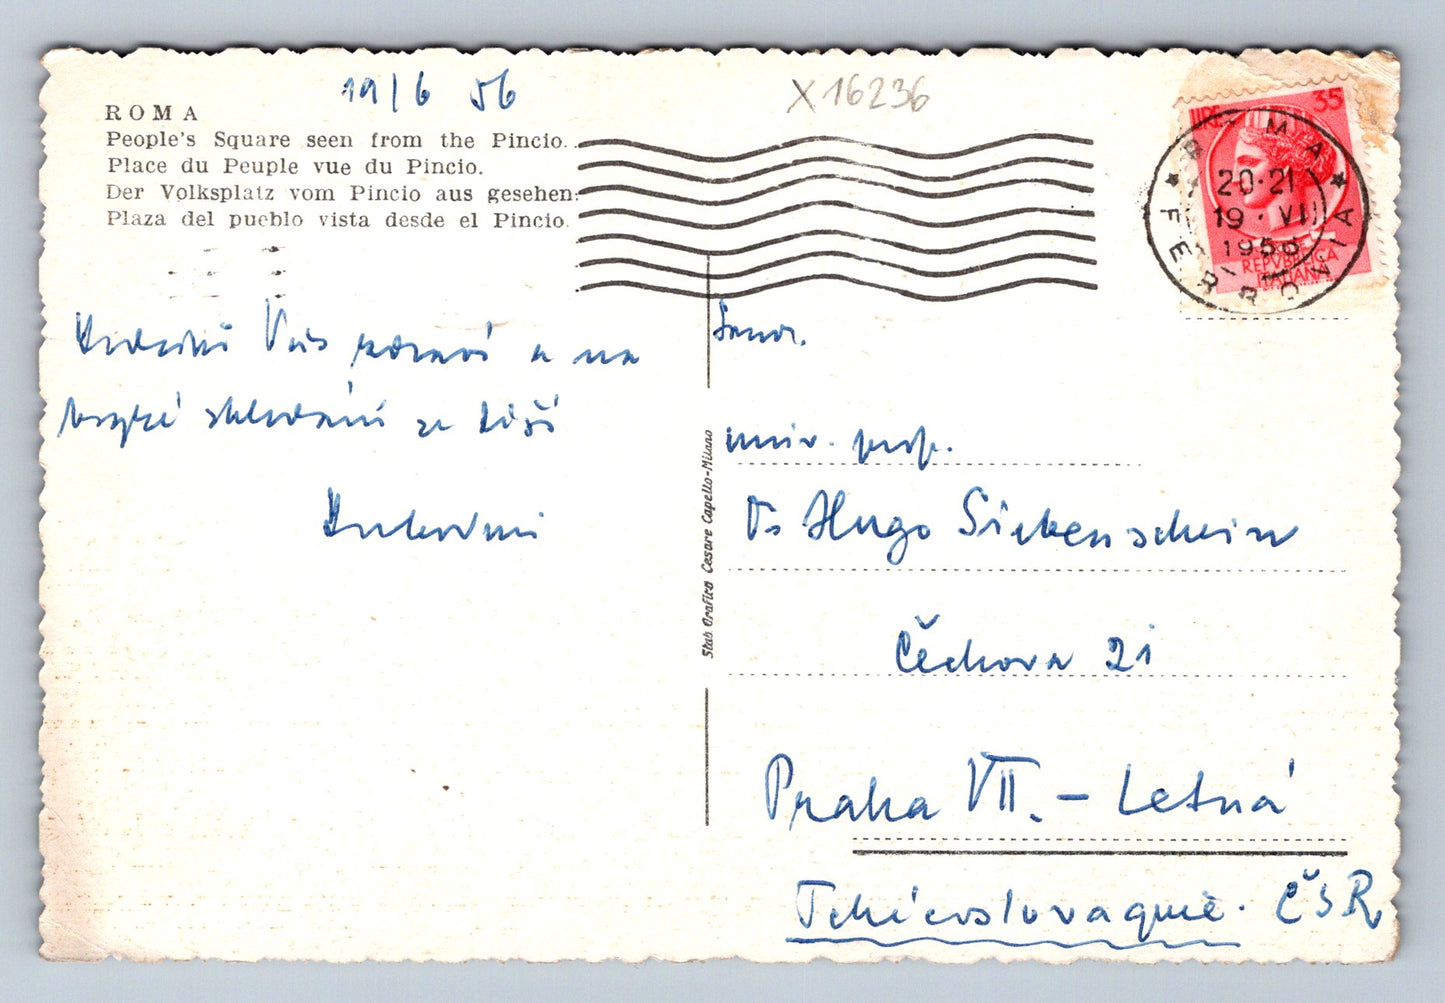 19/6 56
X 16236
ROMA
People's Square seen from the Pincio.
Place du Peuple vue du Pincio.
Der Volksplatz vom Pincio aus gesehen.
Plaza del pueblo vista desde el Pincio.
LIRE 35
ROMA FERROVIA
20-21
19 · VI
1956
REPVBBLICA
ITALIANA
Srdečně Vás zdraví a na
brzké shledání se těší
Stab Grafico Cesare Capello-Milano
univ. prof.
Dr Hugo Siebenschein
Čechova 21
Praha VII. – Letná
Tchécoslovaquie. ČSR